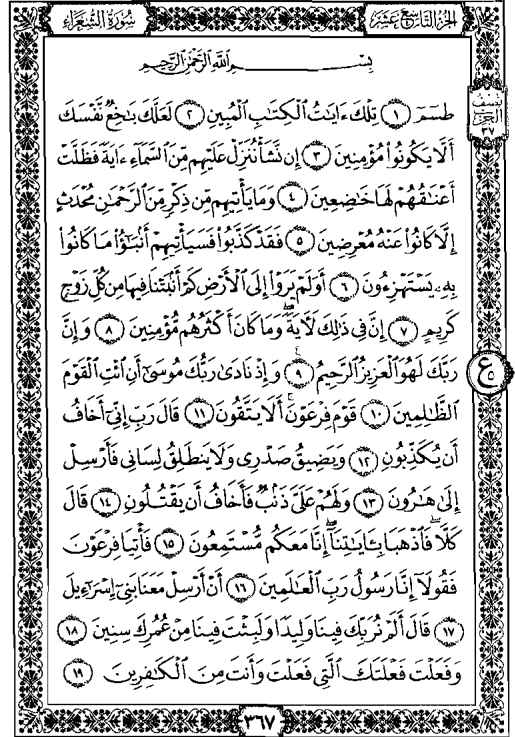 سُورَةُ الشُّعَرَاءِ
الجُزْءُ التَّاسِعَ عَشَرَ
بِسْمِ اللَّهِ الرَّحْمَٰنِ الرَّحِيمِ
نِصْفُ
الْحِزْبِ
٣٧
طسٓمٓ ۝١ تِلْكَ ءَايَٰتُ ٱلْكِتَٰبِ ٱلْمُبِينِ ۝٢ لَعَلَّكَ بَٰخِعٌ نَّفْسَكَ
أَلَّا يَكُونُوا۟ مُؤْمِنِينَ ۝٣ إِن نَّشَأْ نُنَزِّلْ عَلَيْهِم مِّنَ ٱلسَّمَآءِ ءَايَةً فَظَلَّتْ
أَعْنَٰقُهُمْ لَهَا خَٰضِعِينَ ۝٤ وَمَا يَأْتِيهِم مِّن ذِكْرٍ مِّنَ ٱلرَّحْمَٰنِ مُحْدَثٍ
إِلَّا كَانُوا۟ عَنْهُ مُعْرِضِينَ ۝٥ فَقَدْ كَذَّبُوا۟ فَسَيَأْتِيهِمْ أَنۢبَٰٓؤُا۟ مَا كَانُوا۟
بِهِۦ يَسْتَهْزِءُونَ ۝٦ أَوَلَمْ يَرَوْا۟ إِلَى ٱلْأَرْضِ كَمْ أَنۢبَتْنَا فِيهَا مِن كُلِّ زَوْجٍ
كَرِيمٍ ۝٧ إِنَّ فِى ذَٰلِكَ لَءَايَةً ۖ وَمَا كَانَ أَكْثَرُهُم مُّؤْمِنِينَ ۝٨ وَإِنَّ
رَبَّكَ لَهُوَ ٱلْعَزِيزُ ٱلرَّحِيمُ ۝٩ وَإِذْ نَادَىٰ رَبُّكَ مُوسَىٰٓ أَنِ ٱئْتِ ٱلْقَوْمَ
ع
ٱلظَّٰلِمِينَ ۝١٠ قَوْمَ فِرْعَوْنَ ۚ أَلَا يَتَّقُونَ ۝١١ قَالَ رَبِّ إِنِّىٓ أَخَافُ
أَن يُكَذِّبُونِ ۝١٢ وَيَضِيقُ صَدْرِى وَلَا يَنطَلِقُ لِسَانِى فَأَرْسِلْ
إِلَىٰ هَٰرُونَ ۝١٣ وَلَهُمْ عَلَىَّ ذَنۢبٌ فَأَخَافُ أَن يَقْتُلُونِ ۝١٤ قَالَ
كَلَّا ۖ فَٱذْهَبَا بِـَٔايَٰتِنَآ ۖ إِنَّا مَعَكُم مُّسْتَمِعُونَ ۝١٥ فَأْتِيَا فِرْعَوْنَ
فَقُولَآ إِنَّا رَسُولُ رَبِّ ٱلْعَٰلَمِينَ ۝١٦ أَنْ أَرْسِلْ مَعَنَا بَنِىٓ إِسْرَٰٓءِيلَ
۝١٧ قَالَ أَلَمْ نُرَبِّكَ فِينَا وَلِيدًا وَلَبِثْتَ فِينَا مِنْ عُمُرِكَ سِنِينَ ۝١٨
وَفَعَلْتَ فَعْلَتَكَ ٱلَّتِى فَعَلْتَ وَأَنتَ مِنَ ٱلْكَٰفِرِينَ ۝١٩
٣٦٧